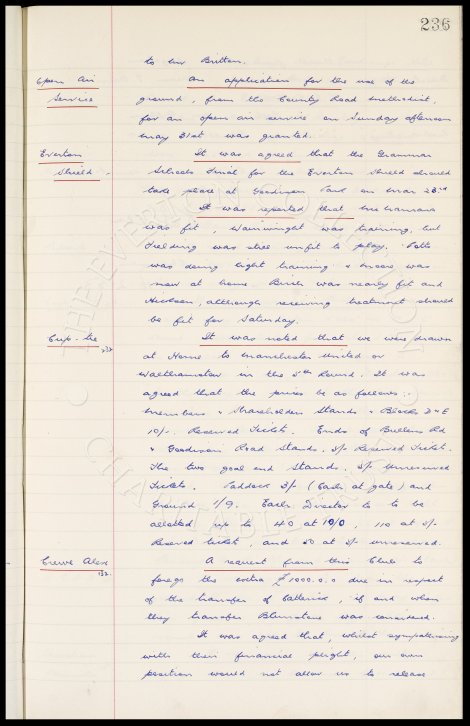 236
to Mr Britton.
Open Air
Service
An application for the use of the
ground, from the County Road Methodist,
for an open air service on Sunday afternoon
May 31st was granted.
Everton
Shield.
It was agreed that the Grammar
Schools Final for the Everton Shield should
take place at Goodison Park on Mar 23rd
It was reported that
was fit, Wainwright was training, but
Fielding was still unfit to play. Potts
was doing light training & Moore was
now at home Birch was nearly fit and
Hickson, although receiving treatment should
be fit for Saturday.
Cup-tie
232
It was noted that we were drawn
at Home to Manchester United or
Walthamstow in the 5th Round. It was
agreed that the prices be as follows:-
Members & Shareholders Stands & Blocks D & E
10/- Reserved Tickets. Ends of Bullens Rd
& Goodison Road Stands, 5/- Reserved Tickets.
The two goal end Stands, 5/- Unreserved
Tickets. Paddock 3/- (Cash at gate) and
Ground 1/9. Each Director to be
allotted up to 40 at 10/0, 110 at 5/-
Reserved tickets, and 50 at 5/- unreserved.
Crewe Alex
132.
A request from this Club to
forego the extra £1000.0.0 due in respect
of the transfer of Catterick, if and when
they transfer Blunstone was considered.
It was agreed that, whilst sympathising
with their financial plight, our own
position would not allow us to release
THE EVERTON COLLECTION
CHARITABLE TRUST